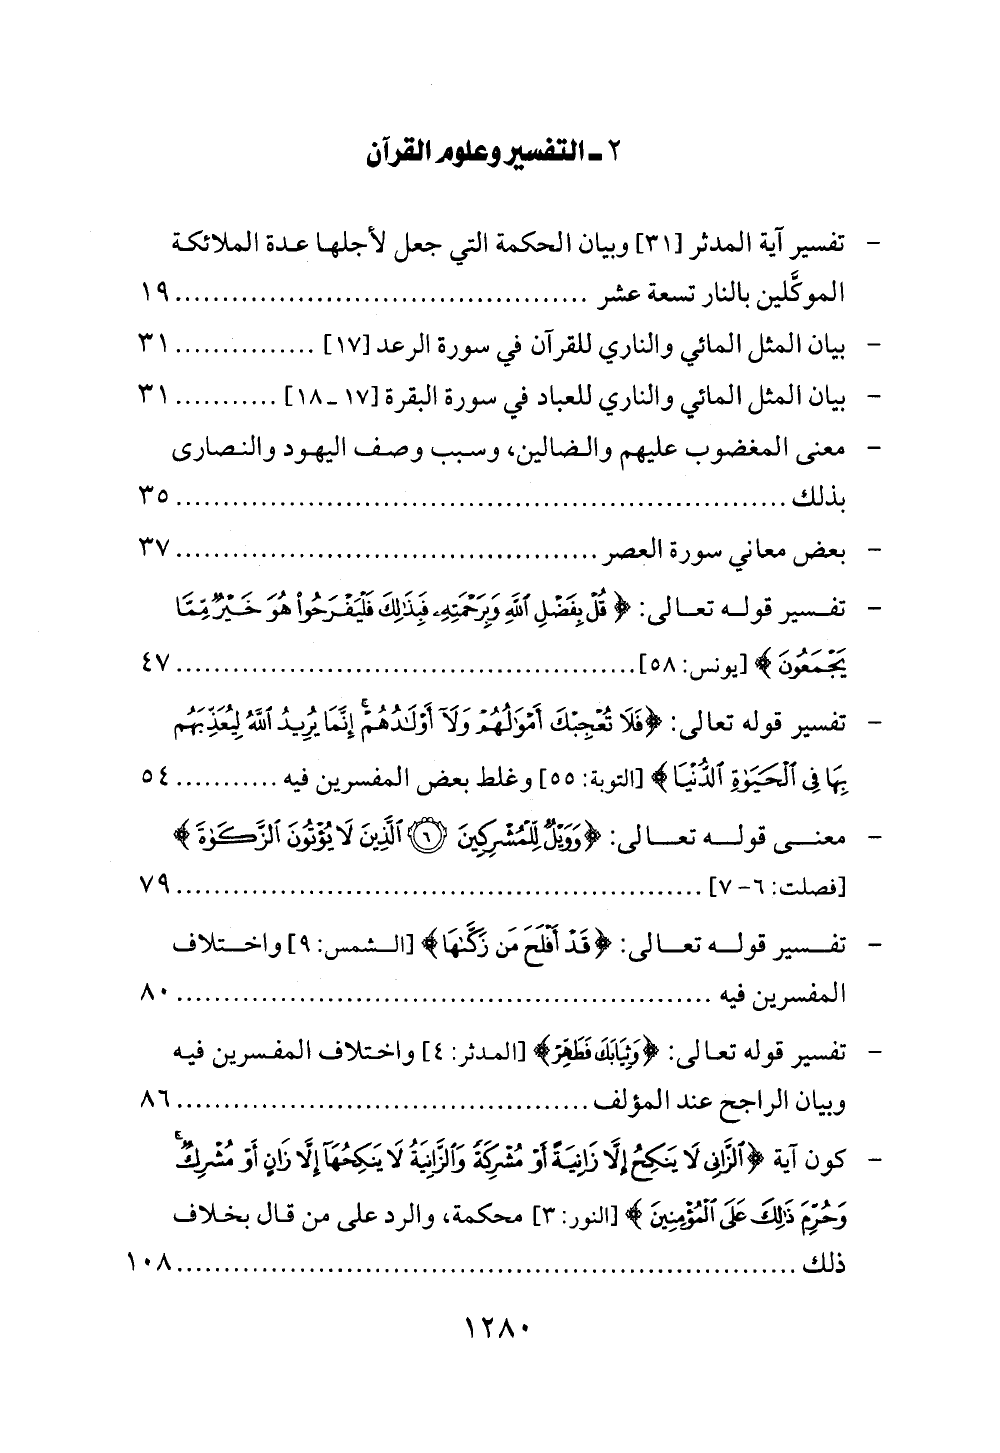 ٢ ـ التفسير وعلوم القرآن
- تفسير آية المدثر [٣١] وبيان الحكمة التي جعل لأجلها عدة الملائكة
الموكَّلين بالنار تسعة عشر ........................................... ١٩
- بيان المثل المائي والناري للقرآن في سورة الرعد [١٧] ............... ٣١
- بيان المثل المائي والناري للعباد في سورة البقرة [١٧ ـ ١٨] ........... ٣١
- معنى المغضوب عليهم والضالين، وسبب وصف اليهود والنصارى
بذلك ................................................................ ٣٥
- بعض معاني سورة العصر ............................................. ٣٧
- تفسير قوله تعالى: ﴿قُلْ بِفَضْلِ ٱللَّهِ وَبِرَحْمَتِهِۦ فَبِذَٰلِكَ فَلْيَفْرَحُوا۟ هُوَ خَيْرٌ مِّمَّا
يَجْمَعُونَ﴾ [يونس: ٥٨] ................................................. ٤٧
- تفسير قوله تعالى: ﴿فَلَا تُعْجِبْكَ أَمْوَٰلُهُمْ وَلَآ أَوْلَـٰدُهُمْ ۚ إِنَّمَا يُرِيدُ ٱللَّهُ لِيُعَذِّبَهُم
بِهَا فِى ٱلْحَيَوٰةِ ٱلدُّنْيَا﴾ [التوبة: ٥٥] وغلط بعض المفسرين فيه ........... ٥٤
- معنى قوله تعالى: ﴿وَوَيْلٌ لِّلْمُشْرِكِينَ ۝٦ ٱلَّذِينَ لَا يُؤْتُونَ ٱلزَّكَوٰةَ﴾
[فصلت: ٦- ٧] ........................................................ ٧٩
- تفسير قوله تعالى: ﴿قَدْ أَفْلَحَ مَن زَكَّىٰهَا﴾ [الشمس: ٩] واختلاف
المفسرين فيه ......................................................... ٨٠
- تفسير قوله تعالى: ﴿وَثِيَابَكَ فَطَهِّرْ﴾ [المدثر: ٤] واختلاف المفسرين فيه
وبيان الراجح عند المؤلف ............................................. ٨٦
- كون آية ﴿ٱلزَّانِى لَا يَنكِحُ إِلَّا زَانِيَةً أَوْ مُشْرِكَةً وَٱلزَّانِيَةُ لَا يَنكِحُهَآ إِلَّا زَانٍ أَوْ مُشْرِكٌ ۚ
وَحُرِّمَ ذَٰلِكَ عَلَى ٱلْمُؤْمِنِينَ﴾ [النور: ٣] محكمة، والرد على من قال بخلاف
ذلك ................................................................. ١٠٨
١٢٨٠